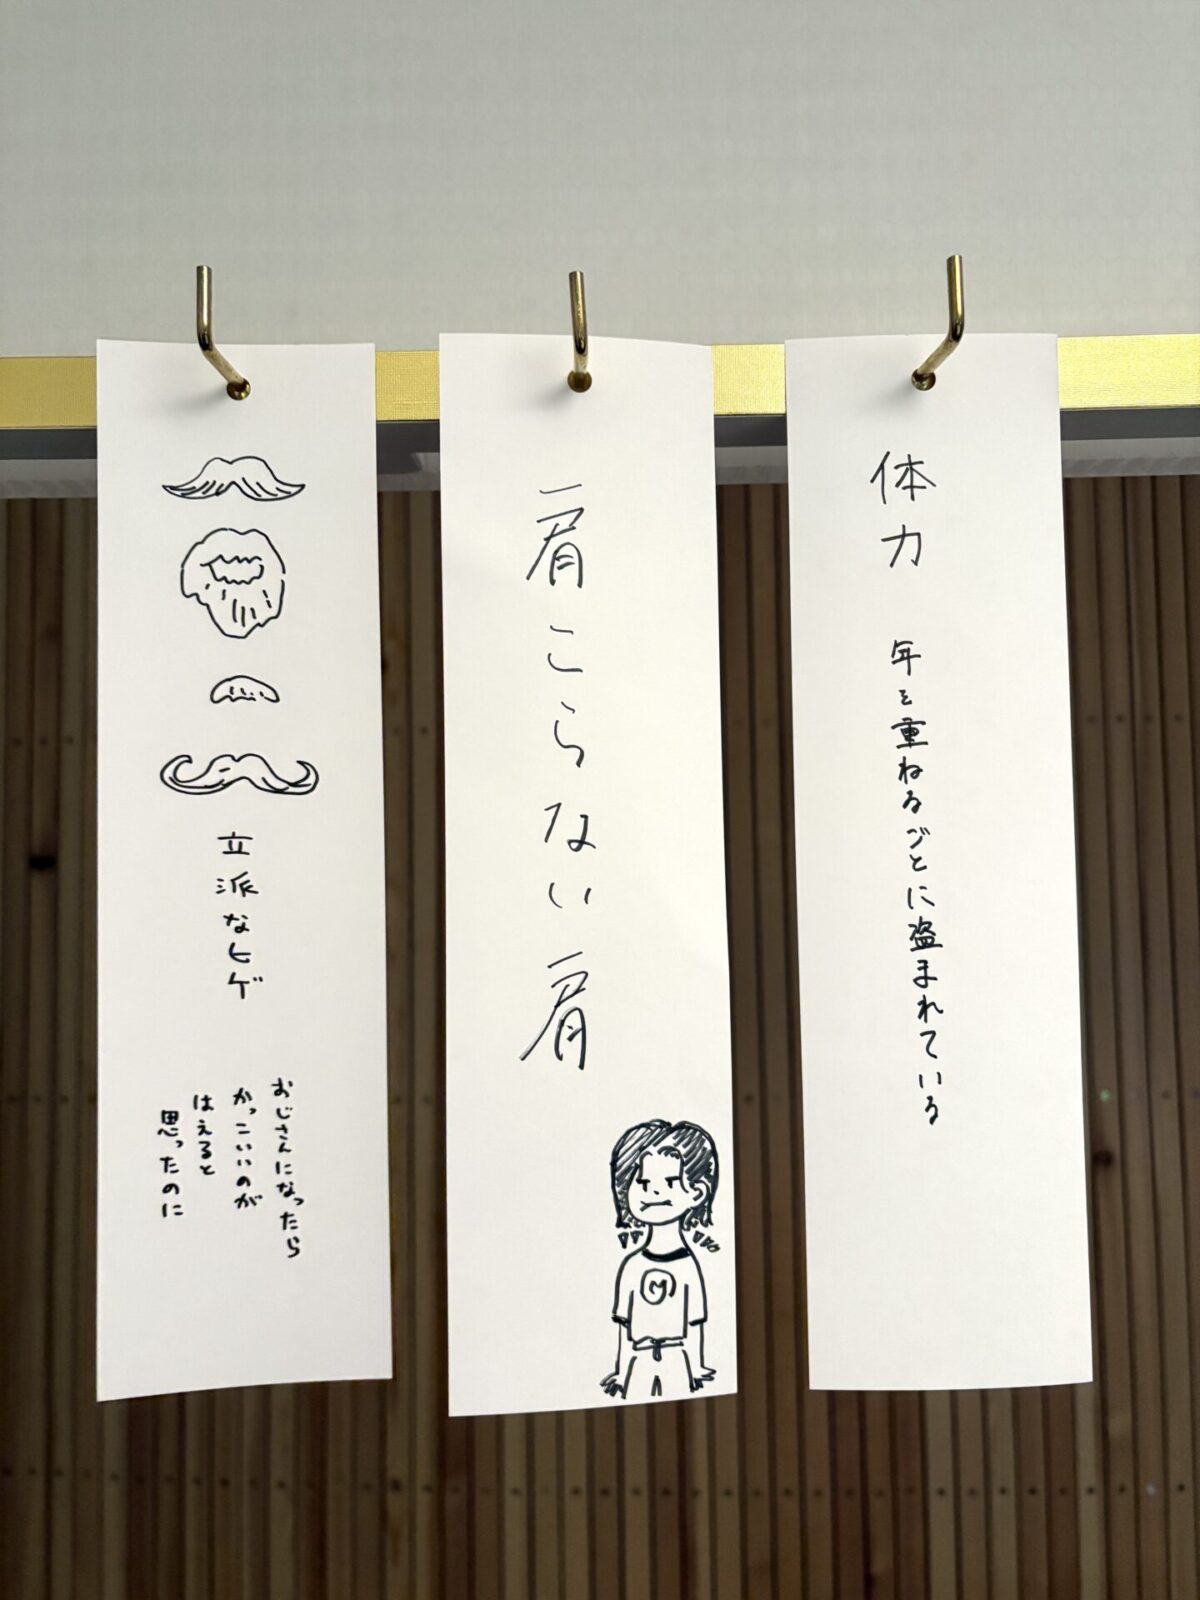 立派なヒゲ
おじさんになったら
かっこいいのが
はえると
思ったのに
肩こらない肩
M
体力
年を重ねるごとに盗まれている